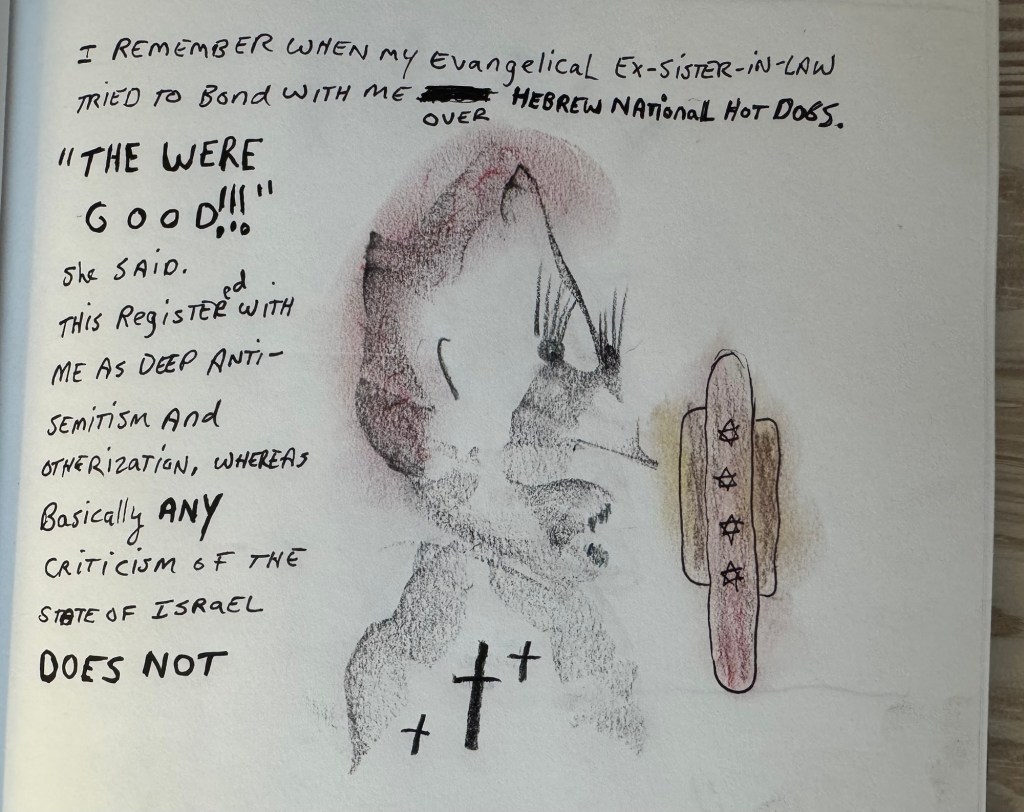 I REMEMBER WHEN MY Evangelical EX-SISTER-IN-LAW
TRIED TO Bond WITH ME OVER HEBREW NATIONAL HOT DOGS.
"THE WERE
GOOD!!!"
She SAID.
THIS RegisTERed WITH
ME AS DEEP ANTI-
SEMITISM And
OTHERIZATION, WHEREAS
Basically ANY
CRITICISM OF THE
STATE OF ISRAEL
DOES NOT